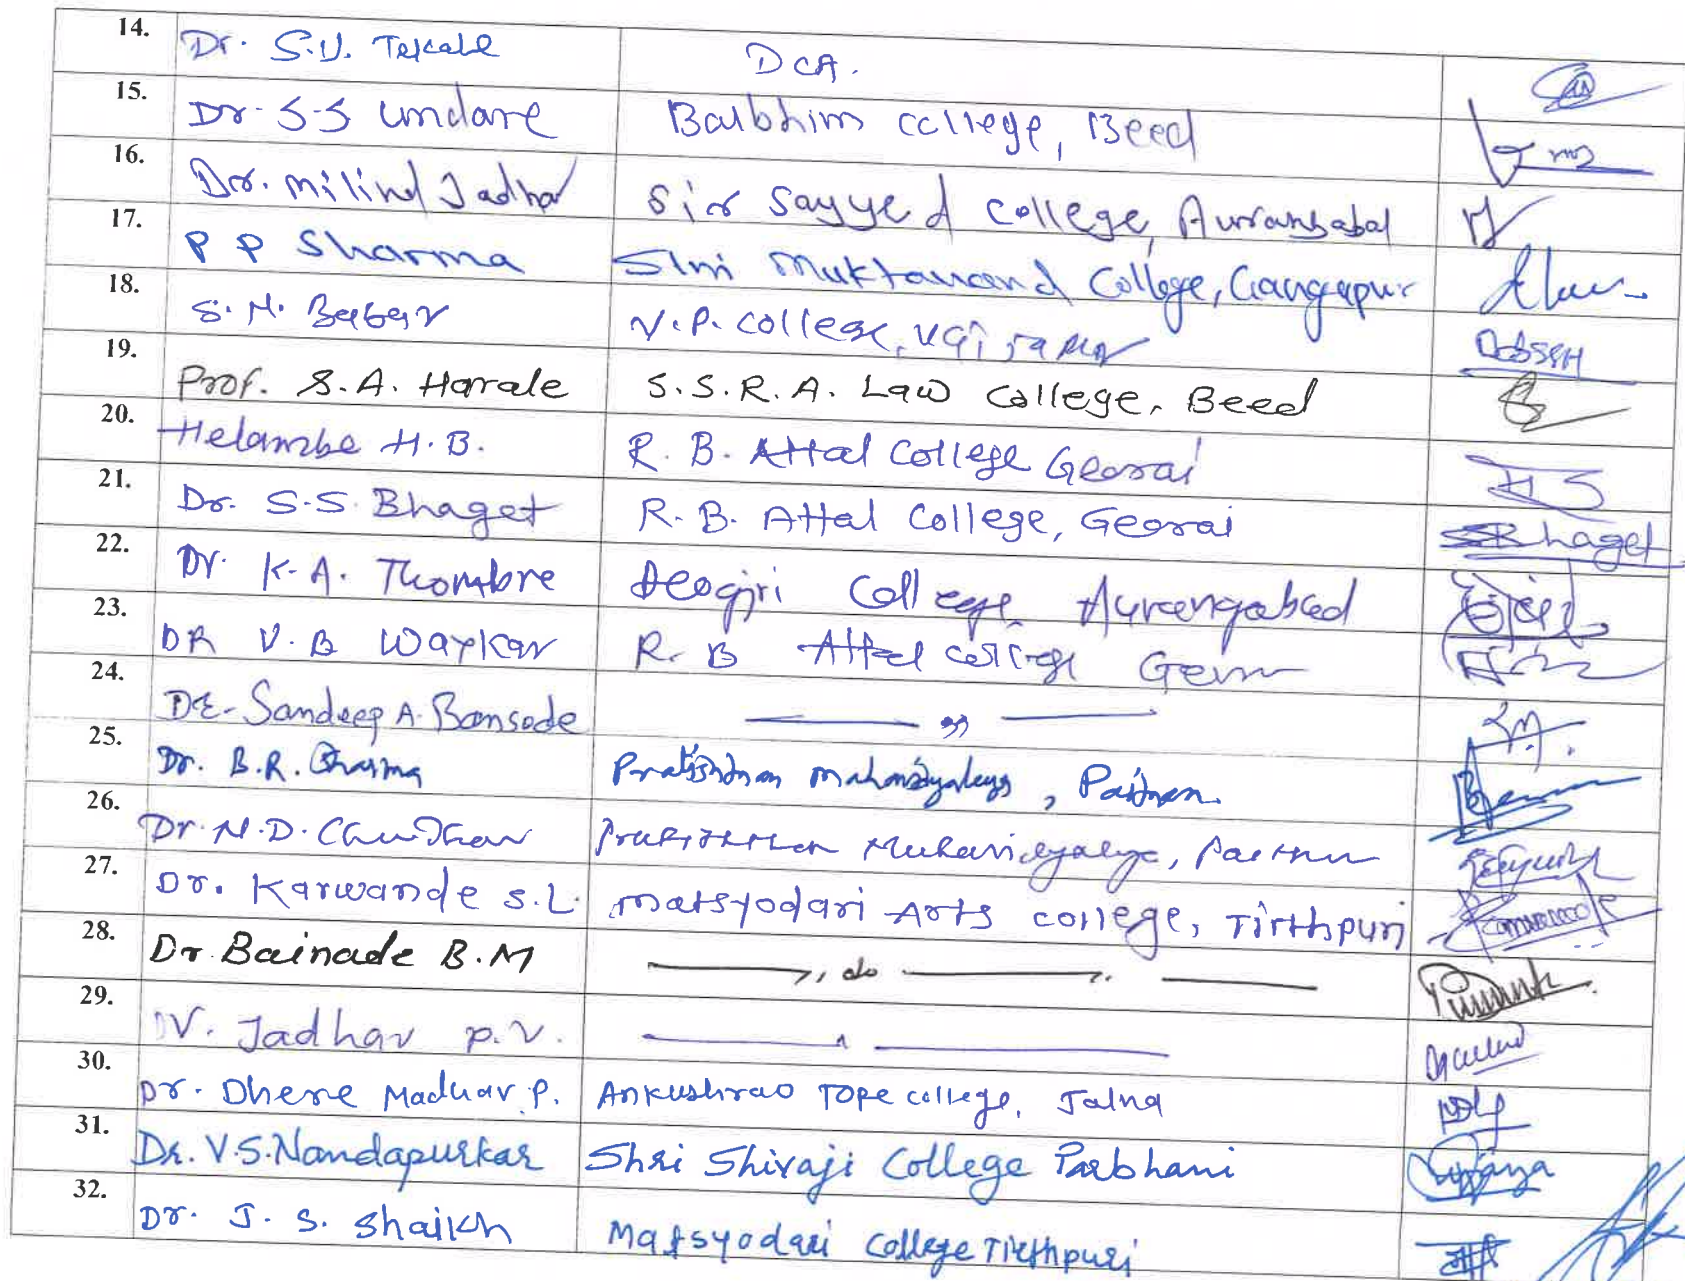 14. Dr. S.U. Tekale DCA.
15. Dr. S-S Undare Balbhim college, Beed
16. Dr. Milind Jadhav Sir Sayyed College, Aurangabad
17. P P Sharma Shri Muktanand College, Gangapur
18. S. N. Babar V.P. College, Vaijapur
19. Prof. S.A. Harale S.S.R.A. Law College, Beed
20. Helambe H.B. R. B. Attal College Georai
21. Dr. S.S. Bhaget R. B. Attal College, Georai SSBhaget
22. Dr. K.A. Thombre Deogiri College Aurangabad
23. DR V.B Waykar R. B Attal College
24. Dr. Sandeep A. Bansode —— " ——
25. Dr. B.R. Sharma Pratishthan Mahavidyalaya, Paithan.
26. Dr. N.D. Pratishthan Mahavidyalaya, Paithan
27. Dr. Karwande S.L. Matsyodari Arts college, Tirthpuri
28. Dr Bainade B.M ——, do ——. ——
29. Jadhav P.V. —— " ——
30. Dr. Dhere Madhav P. Ankushrao Tope college, Jalna
31. Dr. V.S. Nandapurkar Shri Shivaji College Parbhani
32. Dr. J. S. Shaikh Matsyodari College Tirthpuri